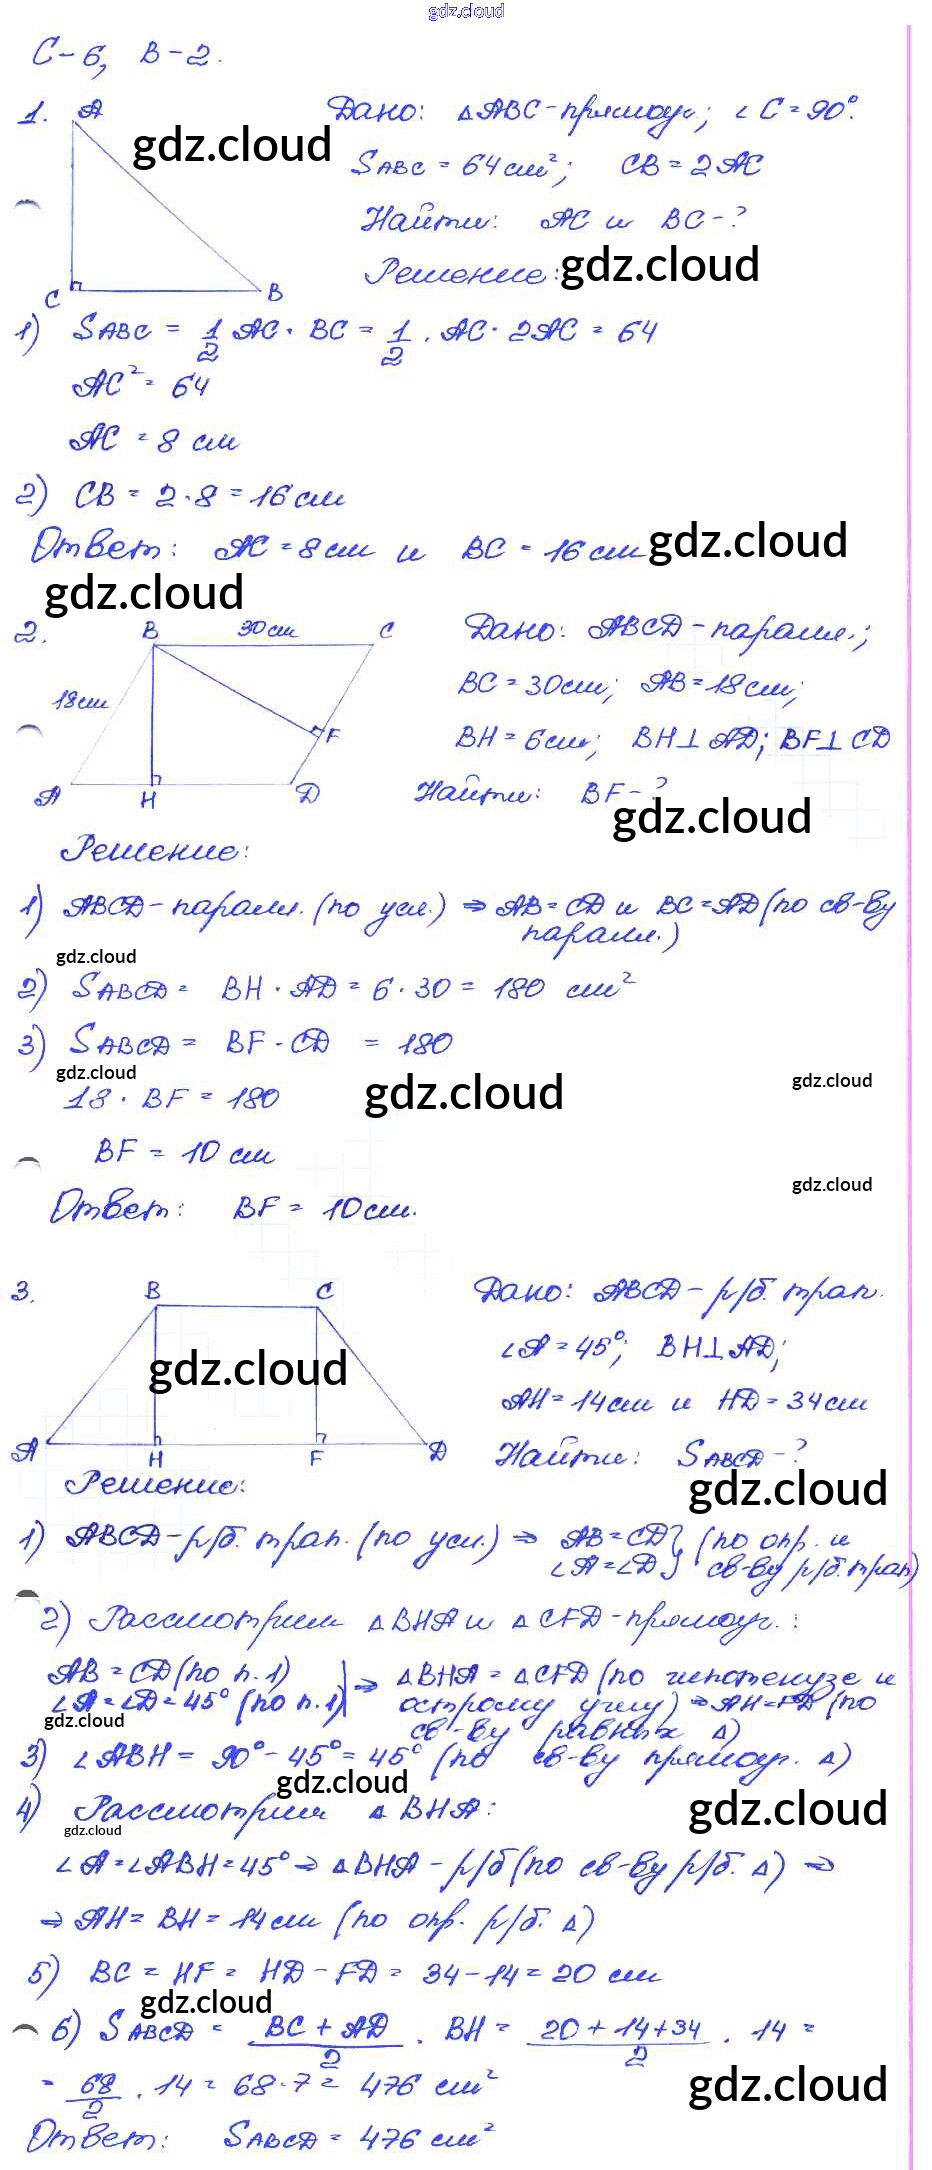 gdz.cloud
С-6, В-2.
1. A
C B
Дано: △ABC-прямоуг.; ∠C=90°.
gdz.cloud
SABC = 64см²; CB=2AC
Найти: AC и BC-?
Решение:
gdz.cloud
1) SABC = 1/2 AC · BC = 1/2 · AC · 2AC = 64
AC² = 64
AC = 8 см
2) CB = 2·8 = 16 см
Ответ: AC = 8 см и BC = 16 см
gdz.cloud
gdz.cloud
2. B 30см C
18см
F
A H D
Дано: ABCD-паралл.;
BC=30см; AB=18см;
BH=6см; BH⊥AD; BF⊥CD
Найти: BF-?
gdz.cloud
Решение:
1) ABCD-паралл. (по усл.) ⇒ AB=CD и BC=AD (по св-ву
паралл.)
gdz.cloud
2) SABCD = BH · AD = 6·30 = 180 см²
3) SABCD = BF · CD = 180
gdz.cloud
gdz.cloud
gdz.cloud
18 · BF = 180
BF = 10 см
gdz.cloud
Ответ: BF = 10см.
3. B C
A H F D
gdz.cloud
Дано: ABCD-р/б. трап.
∠A=45°; BH⊥AD;
AH=14см и HD=34см
Найти: SABCD-?
gdz.cloud
Решение:
1) ABCD-р/б. трап. (по усл.) ⇒ AB=CD} (по опр. и
∠A=∠D} св-ву р/б. трап)
2) Рассмотрим △BHA и △CFD-прямоуг.:
AB=CD (по п.1) } ⇒ △BHA = △CFD (по гипотенузе и
∠A=∠D=45° (по п.1)} острому углу) ⇒ AH=FD (по
gdz.cloud
св-ву равных △)
3) ∠ABH = 90°-45°=45° (по св-ву прямоуг. △)
gdz.cloud
4) Рассмотрим △BHA:
gdz.cloud
gdz.cloud
∠A=∠ABH=45° ⇒ △BHA-р/б (по св-ву р/б. △) ⇒
⇒ AH=BH=14см (по опр. р/б. △)
5) BC = HF = HD-FD = 34-14=20 см
gdz.cloud
6) SABCD = BC+AD/2 · BH = 20+14+34/2 · 14 =
= 68/2 · 14 = 68·7 = 476 см²
gdz.cloud
Ответ: SABCD = 476 см²